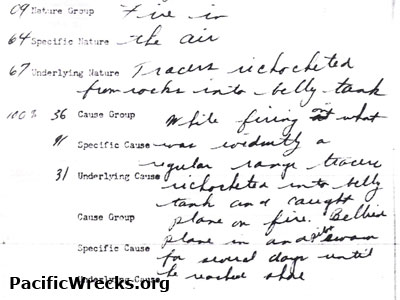 09 Nature Group Fire in
64 Specific Nature the air
67 Underlying Nature Tracers richocheted
from rocks into belly tank
100% 36 Cause Group While firing at what
91 Specific Cause was evidently a
regular range tracers
31 Underlying Cause richocheted into belly
tank and caught
Cause Group plane on fire. Bellied
plane in and swam
Specific Cause for several days until
Underlying Cause he reached shore
PacificWrecks.org